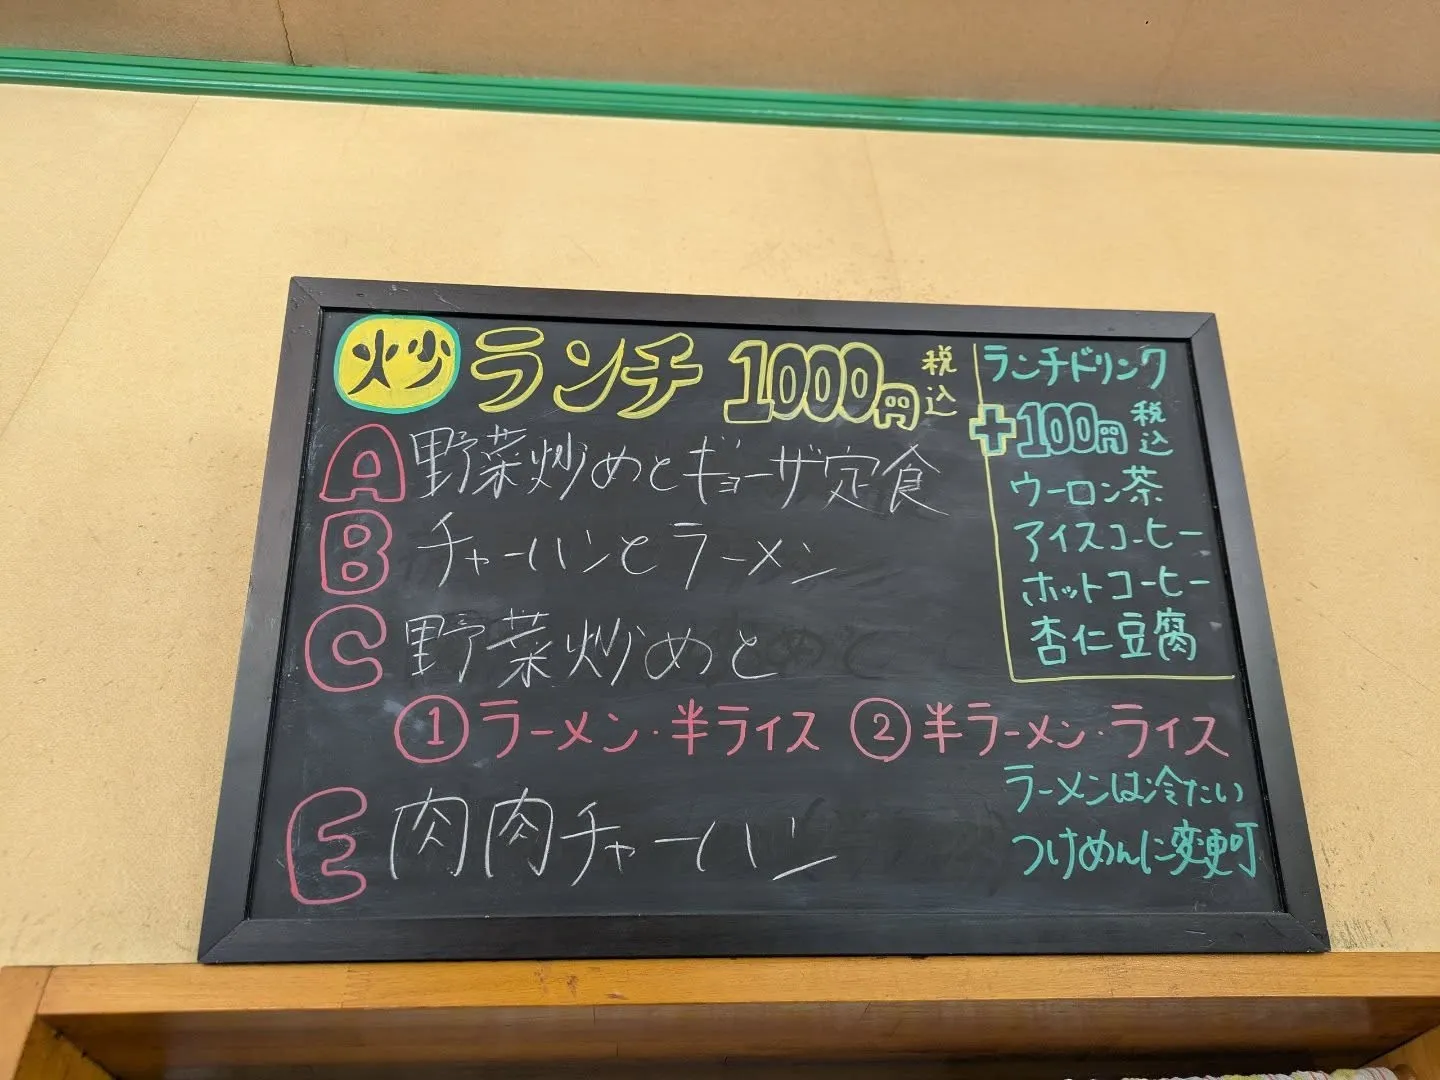 炒 ランチ 1000円 税込
A 野菜炒めとギョーザ定食
B チャーハンとラーメン
C 野菜炒めと
① ラーメン・半ライス ② 半ラーメン・ライス
E 肉肉チャーハン
ランチドリンク
+100円 税込
ウーロン茶
アイスコーヒー
ホットコーヒー
杏仁豆腐
ラーメンは冷たい
つけめんに変更可